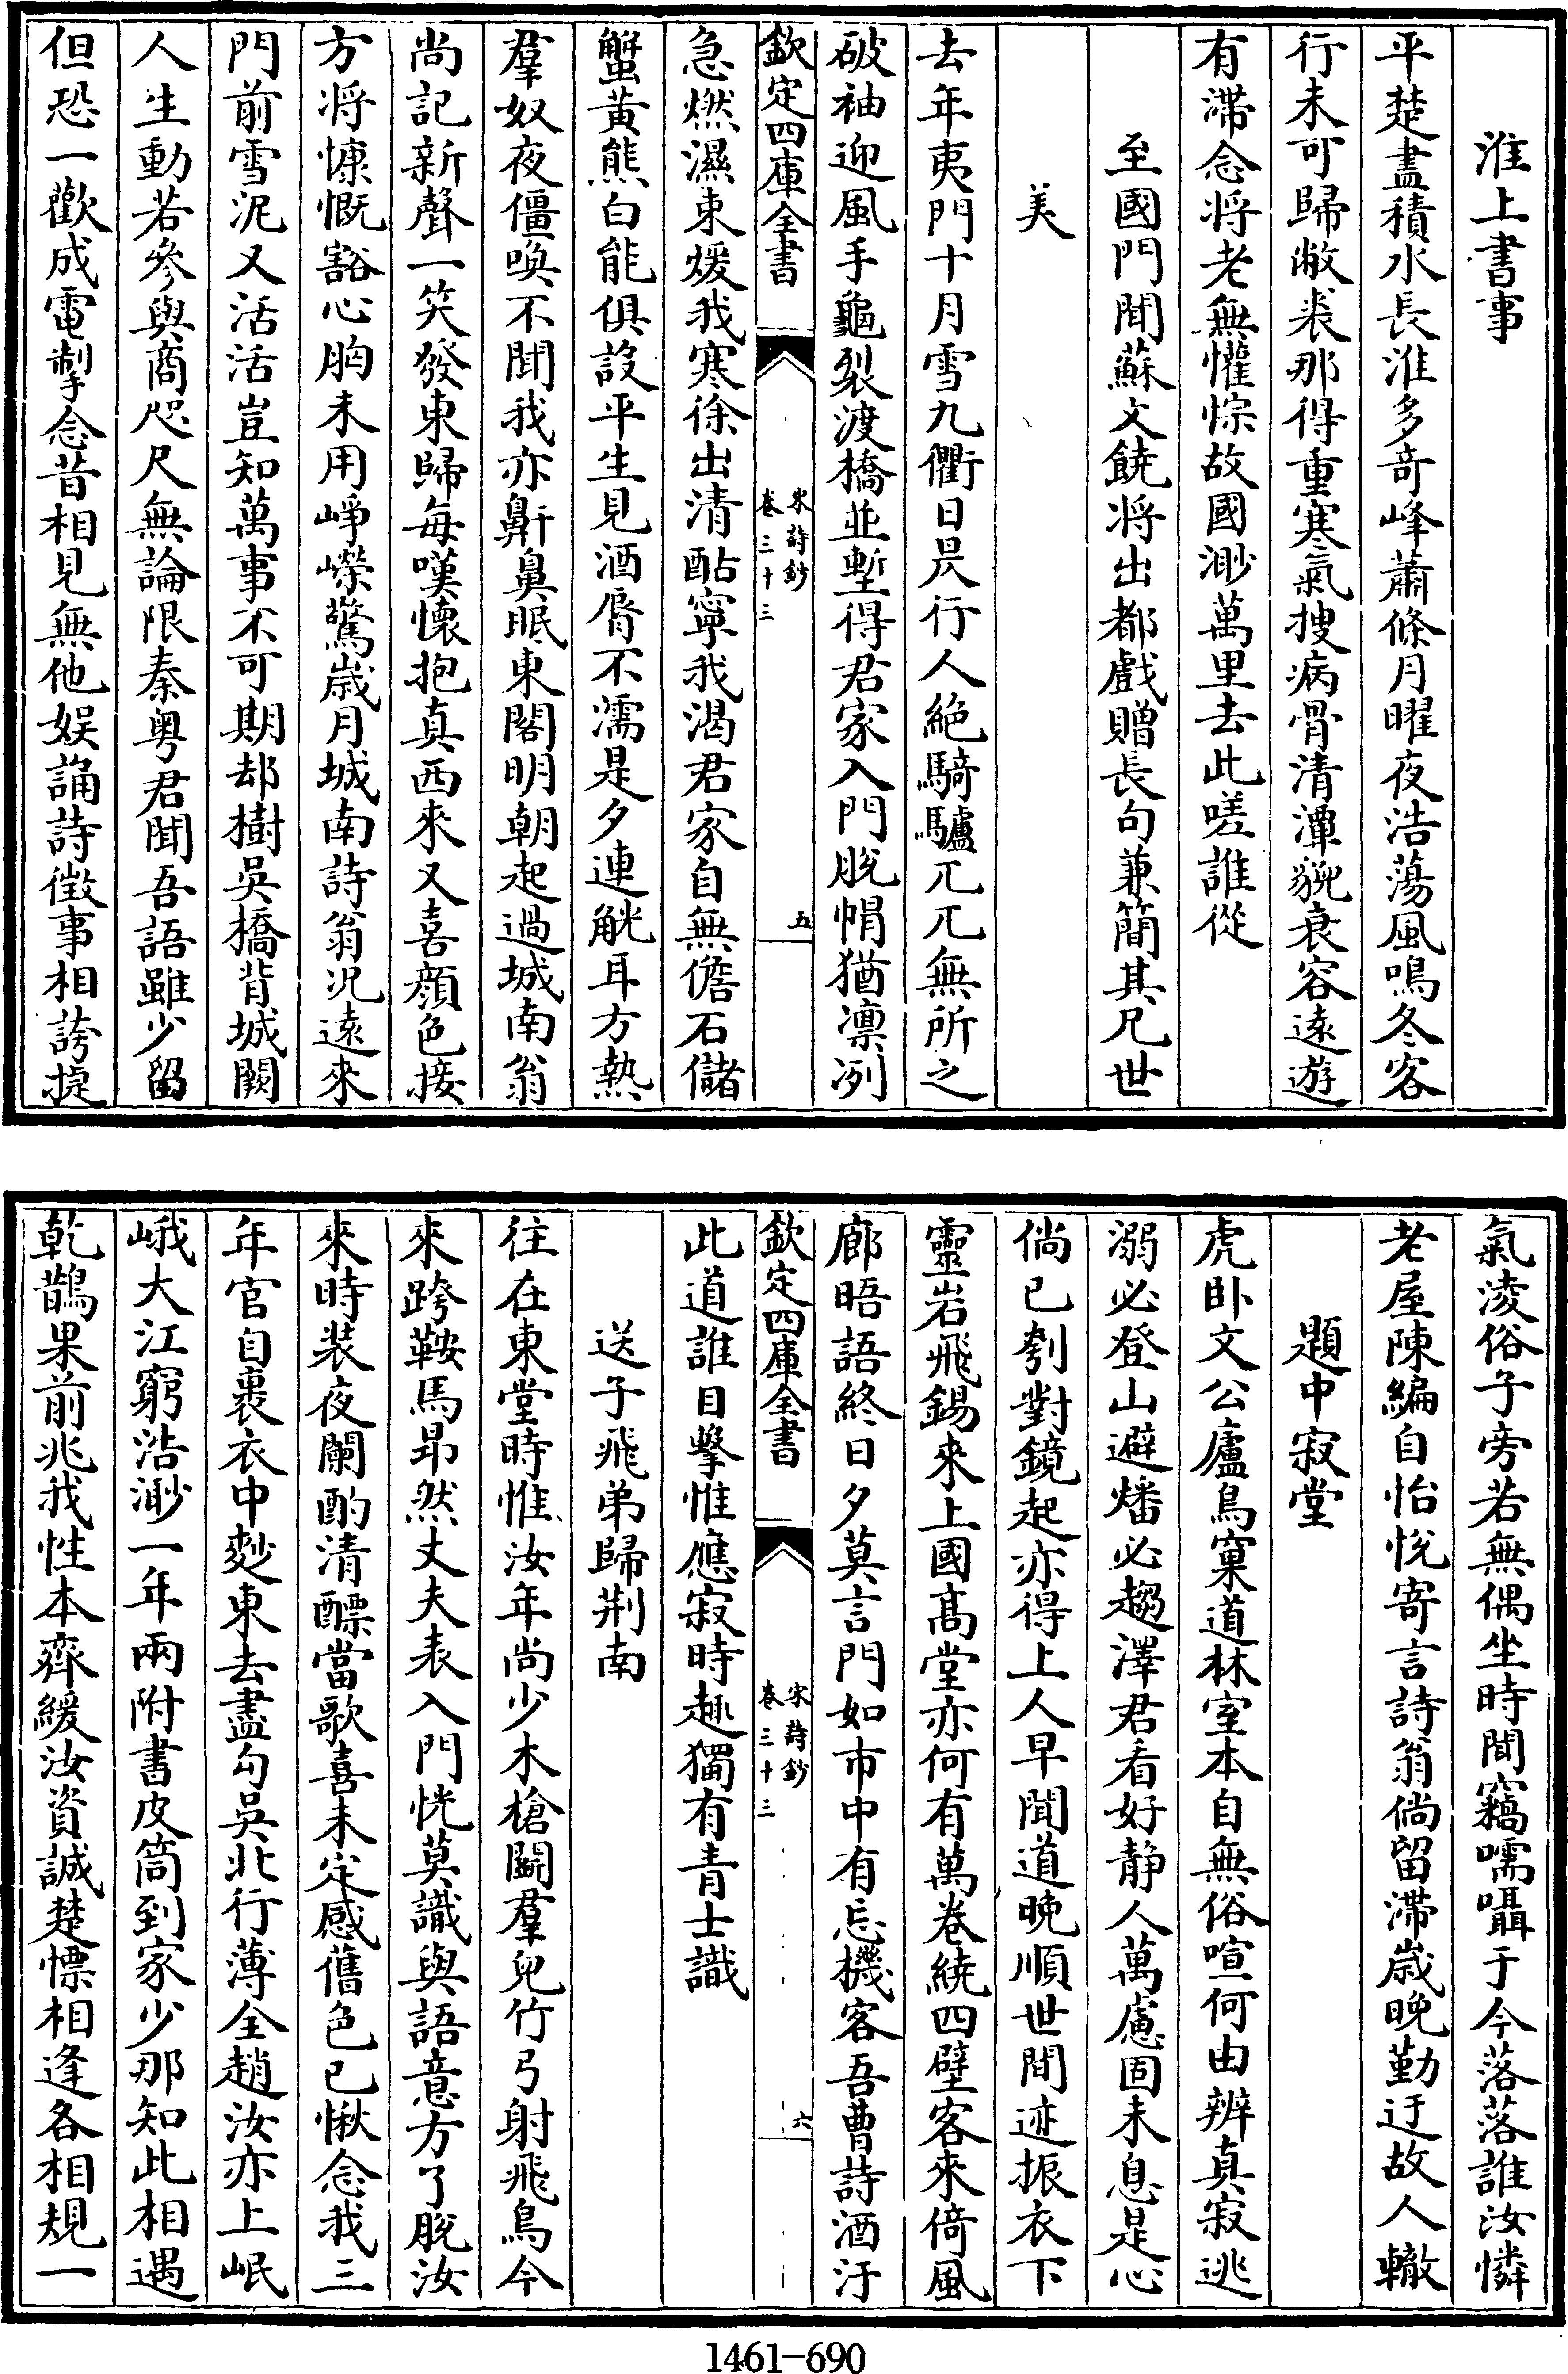 淮上書事
平楚盡積水長淮多竒峰蕭條月曜夜浩蕩風鳴冬客
行未可歸敝裘那得重寒氣搜病骨清潭貌衰容逺遊
有滯念将老無懽悰故國渺萬里去此嗟誰從
至國門聞蘇文饒将出都戲贈長句兼簡其兄世
美
去年夷門十月雪九衢日昃行人絶騎驢兀兀無所之
破袖迎風手龜裂渡橋並塹得君家入門脫帽猶凛冽
欽定四庫全書
宋詩鈔
卷三十三
五
急燃濕束煖我寒徐出清酤寧我渴君家自無儋石儲
蟹黃熊白能俱設平生見酒脣不濡是夕連觥耳方熱
羣奴夜僵喚不聞我亦鼾鼻眠東閣明朝起過城南翁
尚記新聲一笑發東歸每嘆懷抱真西來又喜顔色接
方将慷慨豁心胸未用崢嶸驚歳月城南詩翁况逺來
門前雪泥又活活豈知萬事不可期却樹吳橋背城闕
人生動若參與商咫尺無論限秦粵君聞吾語雖少留
但恐一歡成電掣念昔相見無他娱誦詩徵事相誇捷
氣淩俗子旁若無偶坐時聞竊嚅囁于今落落誰汝憐
老屋陳編自怡悅寄言詩翁倘留滯歳晚勤迂故人轍
題中寂堂
虎卧文公廬鳥窠道林室本自無俗喧何由辨真寂逃
溺必登山避燔必趨澤君看好静人萬慮固未息是心
倘已刳對鏡起亦得上人早聞道晚順世間迹振衣下
靈岩飛錫來上國髙堂亦何有萬卷繞四壁客來倚風
廊晤語終日夕莫言門如市中有忘機客吾曹詩酒汙
欽定四庫全書
宋詩鈔
卷三十三
六
此道誰目擊惟應寂時趣獨有青士識
送子飛弟歸荆南
往在東堂時惟汝年尚少木槍鬬羣兒竹弓射飛鳥今
來跨鞍馬昂然丈夫表入門恍莫識與語意方了脫汝
來時装夜闌酌清醥當歌喜未定感舊色已愀念我三
年官自裹衣中麨東去盡勾吳北行薄全趙汝亦上岷
峨大江窮浩渺一年兩附書皮筒到家少那知此相遇
乾鵲果前兆我性本齊緩汝資誠楚慓相逢各相規一
1461-690